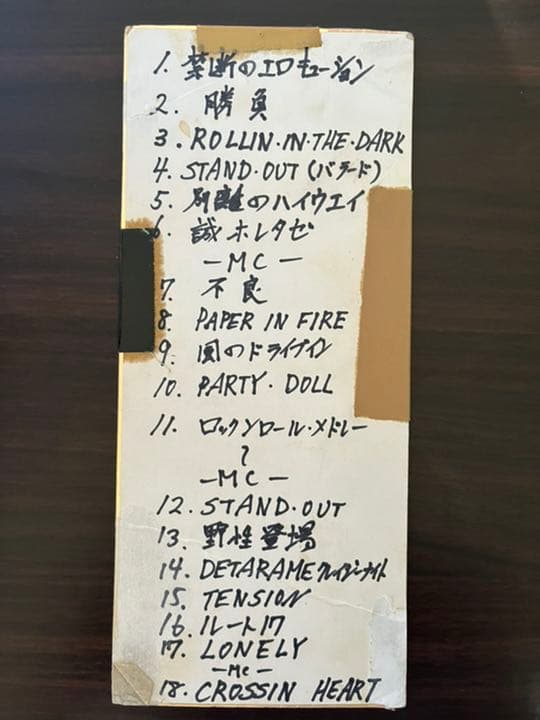 1. 禁断のエロキューション
2. 勝負
3. ROLLIN・IN・THE・DARK
4. STAND・OUT（バラード）
5. 別離のハイウエイ
6. 誠ホレタゼ
－MC－
7. 不良
8. PAPER IN FIRE
9. 風のドライブイン
10. PARTY・DOLL
11. ロックンロール・メドレー
〜
－MC－
12. STAND・OUT
13. 野性登場
14. DETARAMEクレイジーナイト
15. TENSION
16. ルート17
17. LONELY
－MC－
18. CROSSIN HEART